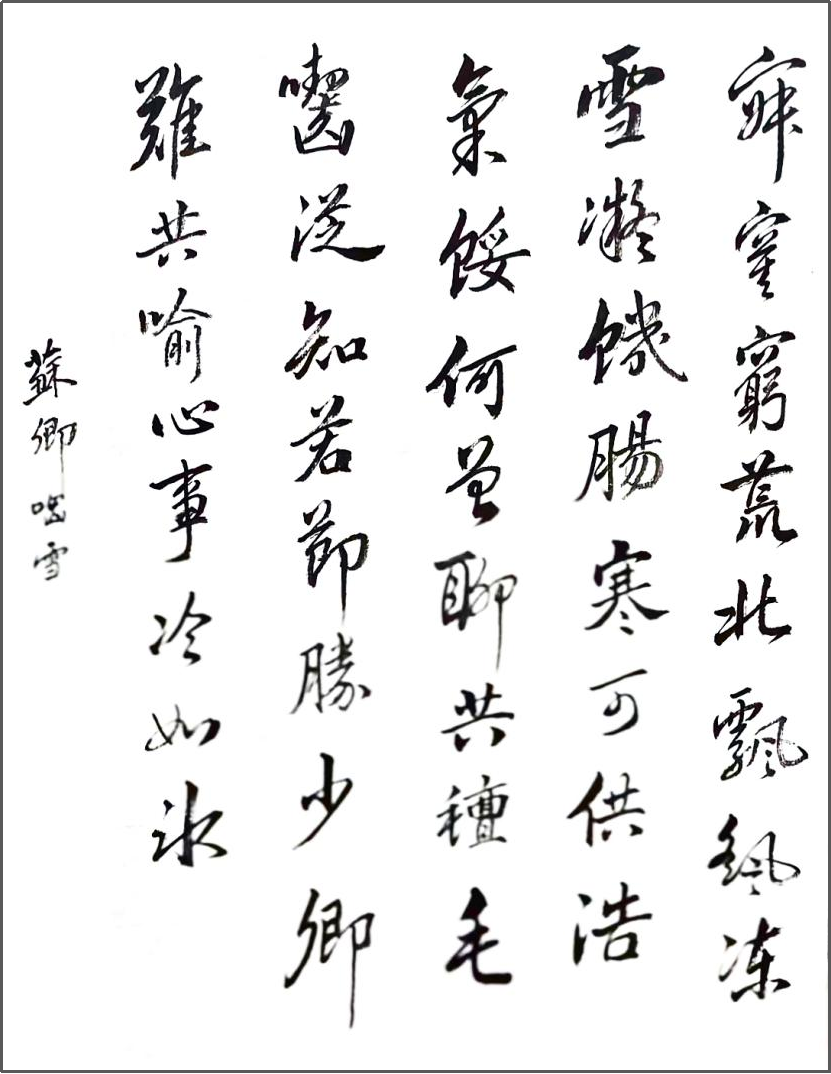 窖窮荒北飄颻凍
雪凝饑腸寒可供浩
氣餒何曾聊共氊毛
囓從知苦節勝少卿
難共喻心事冷如冰
蘇卿啮雪